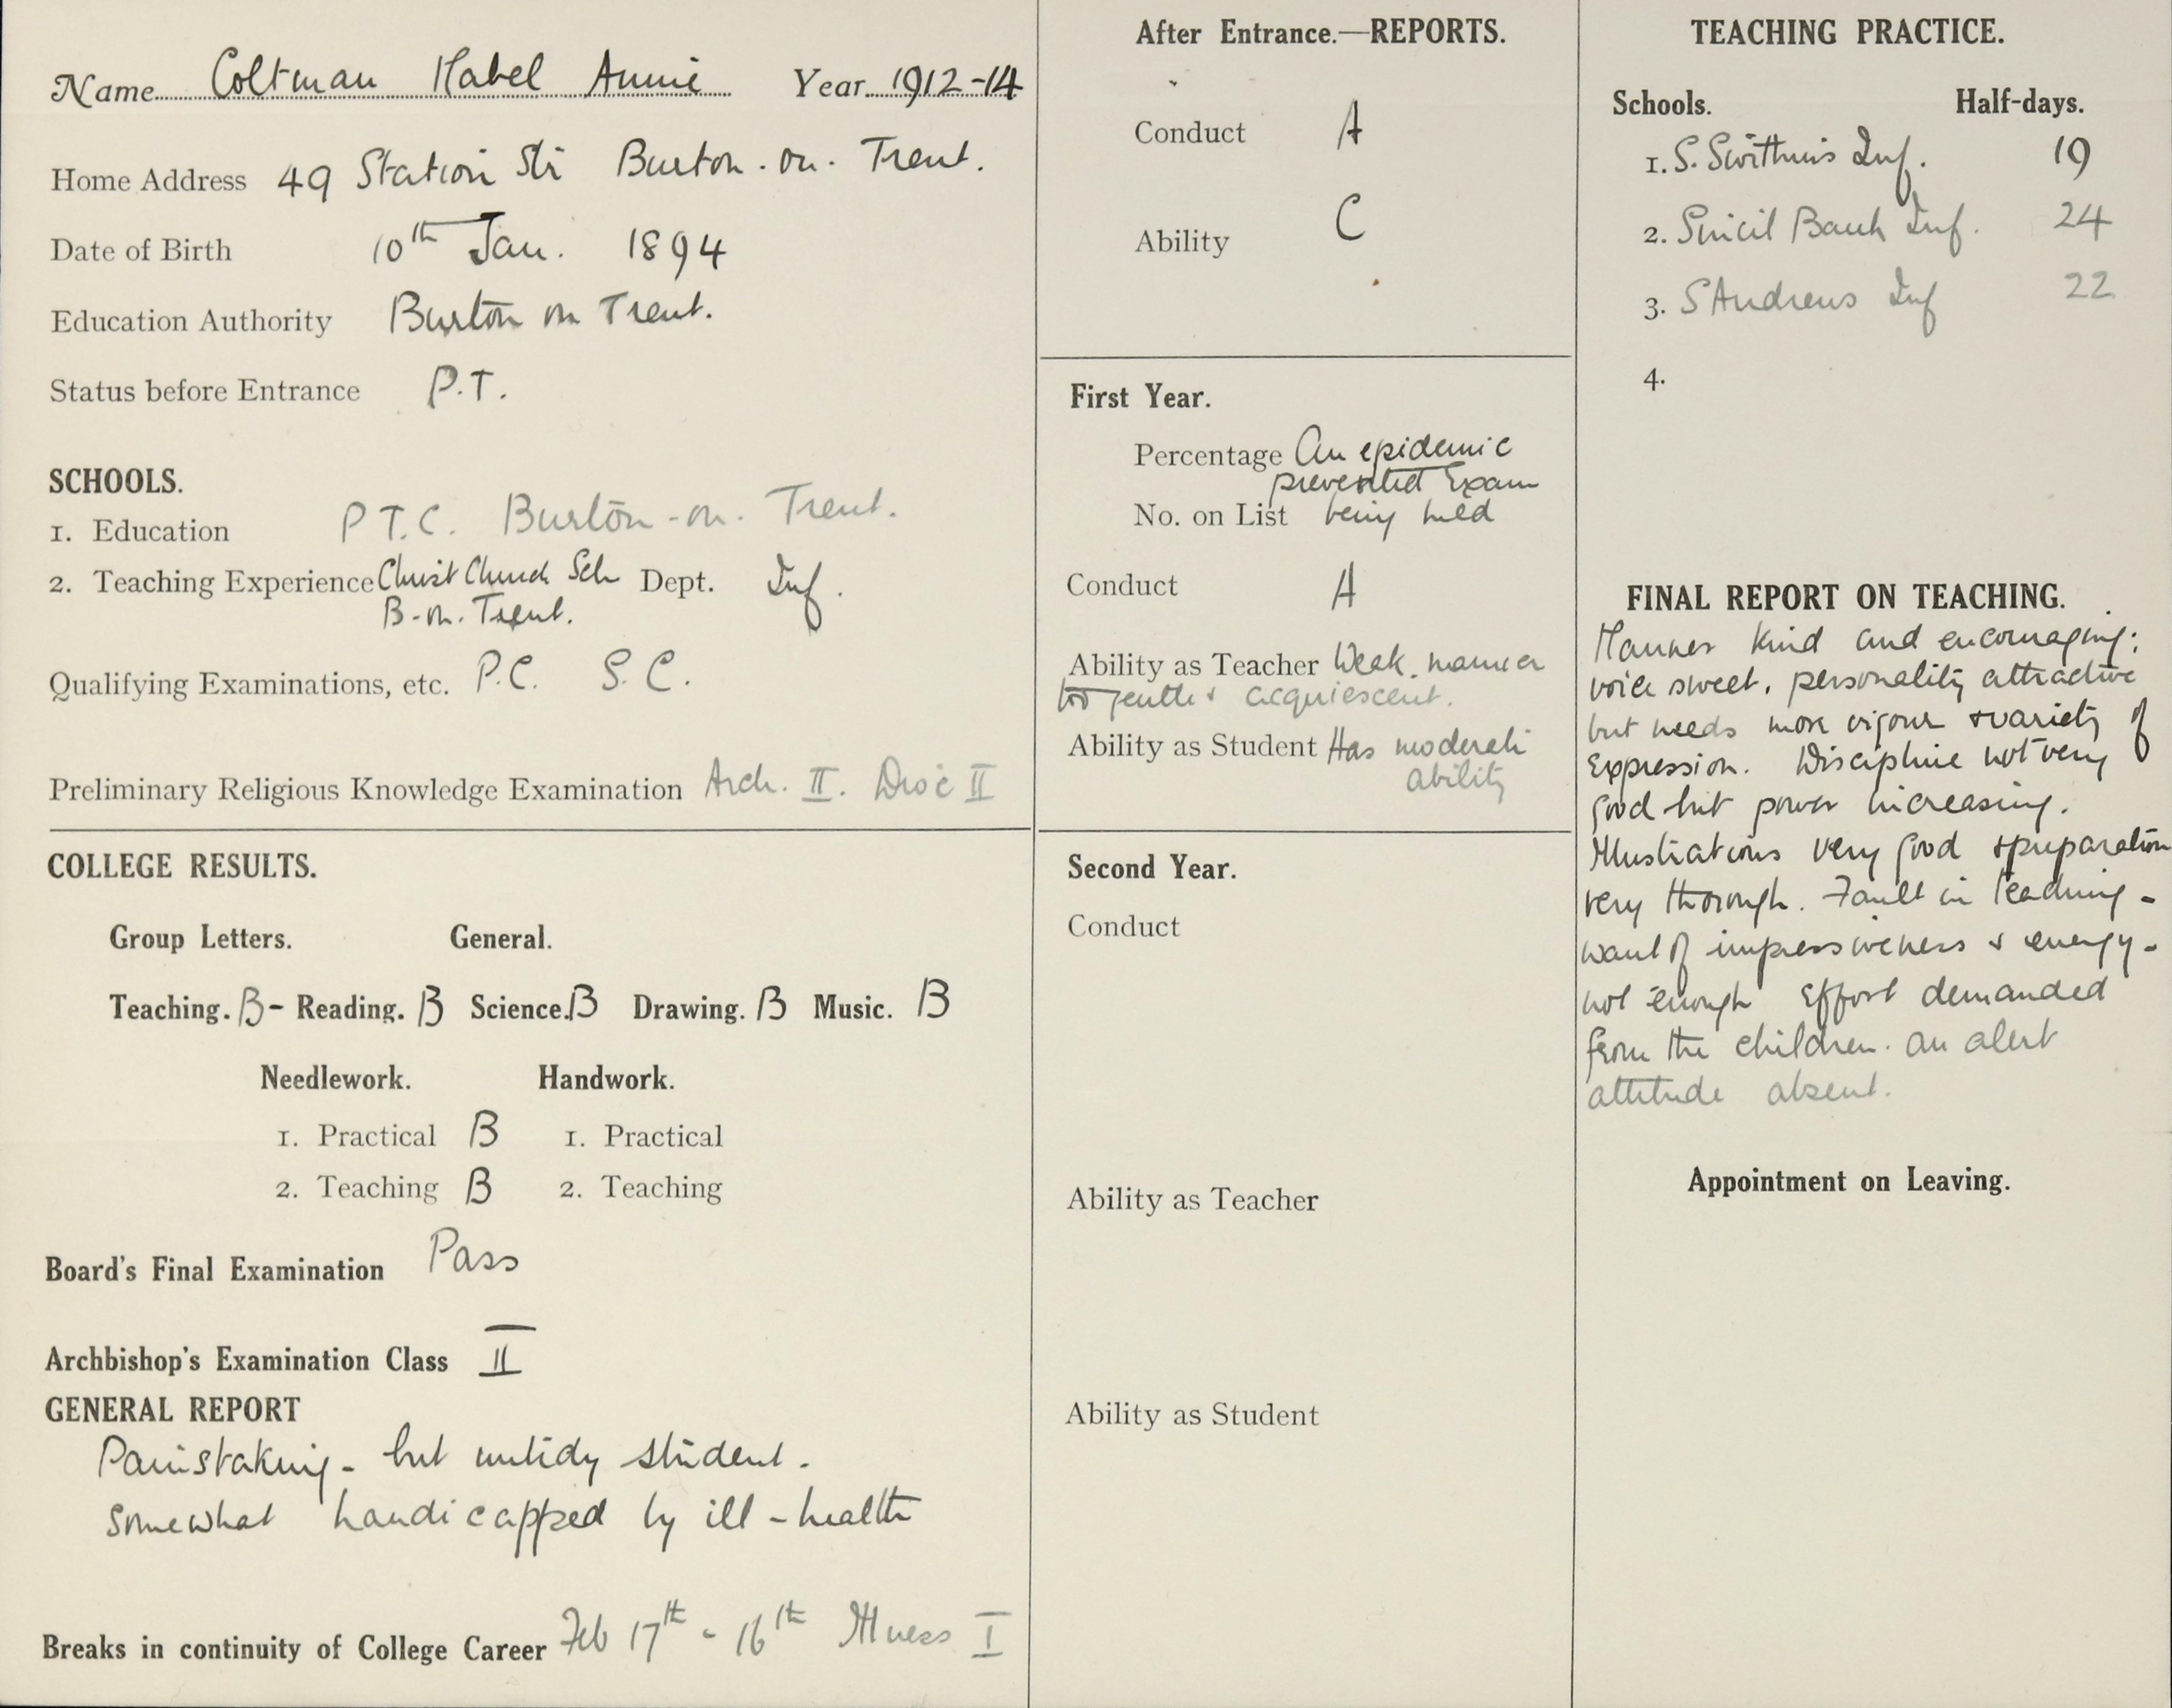 Name Coltman Mabel Annie Year 1912-14
Home Address 49 Station Str Burton-on-Trent.
Date of Birth 10th Jan. 1894
Education Authority Burton on Trent.
Status before Entrance P.T.
SCHOOLS.
1. Education P.T.C. Burton-on-Trent.
2. Teaching Experience Christ Church Sch Dept. Inf.
B-on-Trent.
Qualifying Examinations, etc. P.C. S.C.
Preliminary Religious Knowledge Examination Arch. II. Dioc II
COLLEGE RESULTS.
Group Letters. General.
Teaching. B- Reading. B Science. B Drawing. B Music. B
Needlework. Handwork.
1. Practical B 1. Practical
2. Teaching B 2. Teaching
Board's Final Examination Pass
Archbishop's Examination Class II
GENERAL REPORT
Painstaking - but untidy student.
Somewhat handicapped by ill-health
Breaks in continuity of College Career Feb 17th - 16th Illness I
After Entrance.—REPORTS.
Conduct A
Ability C
First Year.
Percentage An epidemic
prevented Exam
No. on List being held
Conduct A
Ability as Teacher Weak. manner
too gentle & acquiescent.
Ability as Student Has moderate
ability
Second Year.
Conduct
Ability as Teacher
Ability as Student
TEACHING PRACTICE.
Schools. Half-days.
1. S. Swithin's Inf. 19
2. Sincil Bank Inf. 24
3. S Andrews Inf 22
4.
FINAL REPORT ON TEACHING.
Manner kind and encouraging;
voice sweet, personality attractive
but needs more vigour & variety of
expression. Discipline not very
good but power increasing.
Illustrations very good & preparation
very thorough. Fault in teaching -
want of impressiveness & energy -
not enough effort demanded
from the children. an alert
attitude absent.
Appointment on Leaving.